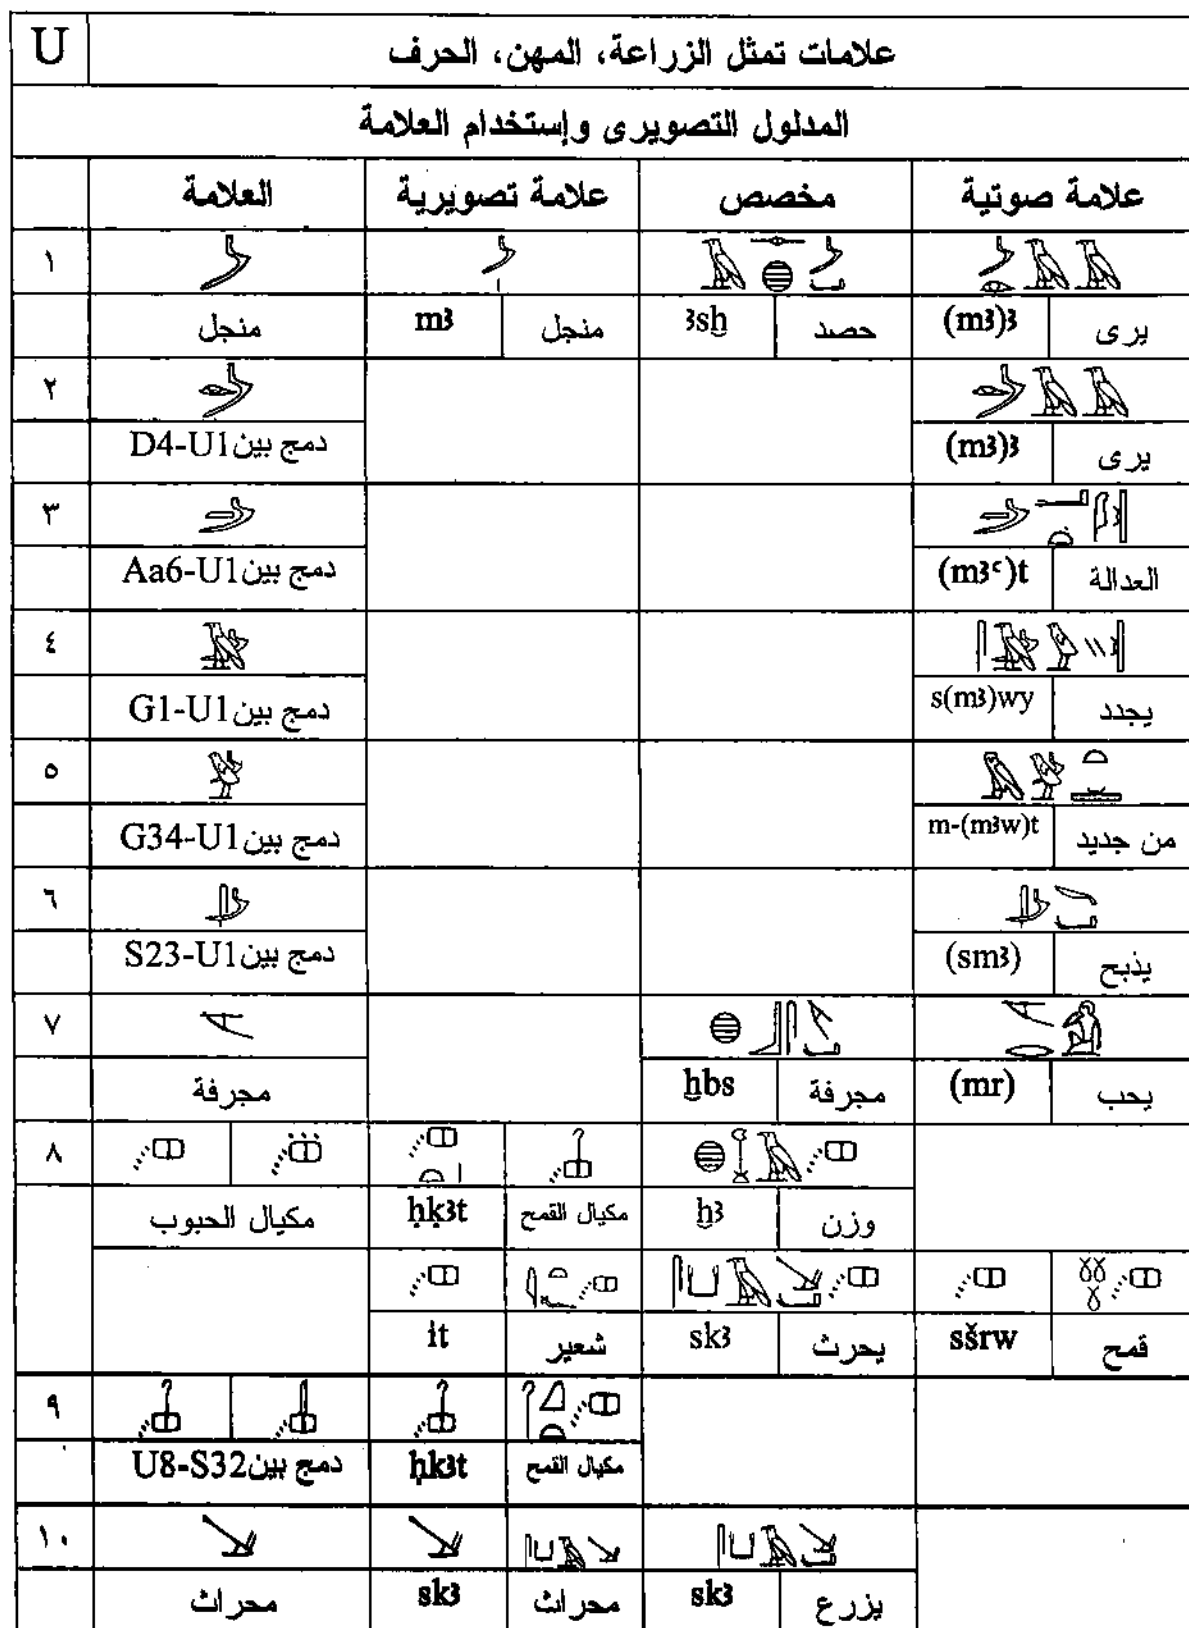 U علامات تمثل الزراعة، المهن، الحرف
المدلول التصويرى وإستخدام العلامة
العلامة علامة تصويرية مخصص علامة صوتية
١
منجل mꜣ منجل ꜣsḫ حصد (mꜣ)ꜣ يرى
٢
دمج بين D4-U1 (mꜣ)ꜣ يرى
٣
دمج بين Aa6-U1 (mꜣꜥ)t العدالة
٤
دمج بين G1-U1 s(mꜣ)wy يجدد
٥
دمج بين G34-U1 m-(mꜣw)t من جديد
٦
دمج بين S23-U1 (smꜣ) يذبح
٧
مجرفة ḫbs مجرفة (mr) يحب
٨
مكيال الحبوب ḥḳꜣt مكيال القمح ḫꜣ وزن
it شعير skꜣ يحرث sšrw قمح
٩
دمج بين U8-S32 ḥkꜣt مكيال القمح
١٠
محراث skꜣ محراث skꜣ يزرع